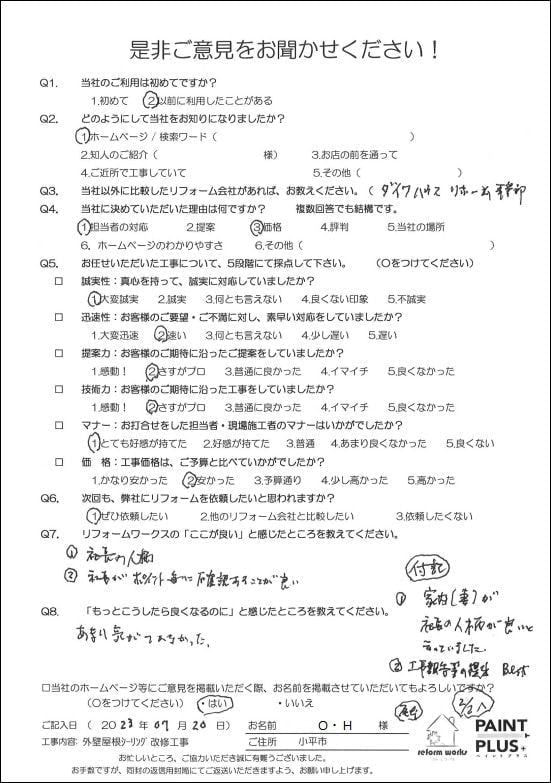 是非ご意見をお聞かせください！
Q1. 当社のご利用は初めてですか？
1.初めて ②以前に利用したことがある
Q2. どのようにして当社をお知りになりましたか？
①ホームページ / 検索ワード（ ）
2.知人のご紹介（ 様） 3.お店の前を通って
4.ご近所で工事していて 5.その他（ ）
Q3. 当社以外に比較したリフォーム会社があれば、お教えください。（ ダイワハウス リホーム
Q4. 当社に決めていただいた理由は何ですか？ 複数回答でも結構です。
①担当者の対応 2.提案 ③価格 4.評判 5.当社の場所
6. ホームページのわかりやすさ 6.その他（ ）
Q5. お任せいただいた工事について、5段階にて採点して下さい。 （○をつけてください）
□ 誠実性：真心を持って、誠実に対応していましたか？
①大変誠実 2.誠実 3.何とも言えない 4.良くない印象 5.不誠実
□ 迅速性：お客様のご要望・ご不満に対し、素早い対応をしていましたか？
1.大変迅速 ②速い 3.何とも言えない 4.少し遅い 5.遅い
□ 提案力：お客様のご期待に沿ったご提案をしていましたか？
1.感動！ ②さすがプロ 3.普通に良かった 4.イマイチ 5.良くなかった
□ 技術力：お客様のご期待に沿った工事をしていましたか？
1.感動！ ②さすがプロ 3.普通に良かった 4.イマイチ 5.良くなかった
□ マナー：お打合せをした担当者・現場施工者のマナーはいかがでしたか？
①とても好感が持てた 2.好感が持てた 3.普通 4.あまり良くなかった 5.良くない
□ 価 格：工事価格は、ご予算と比べていかがでしたか？
1.かなり安かった ②安かった 3.予算通り 4.少し高かった 5.高かった
Q6. 次回も、弊社にリフォームを依頼したいと思われますか？
①ぜひ依頼したい 2.他のリフォーム会社と比較したい 3.依頼したくない
Q7. リフォームワークスの「ここが良い」と感じたところを教えてください。
① 社長の人柄
② 社長がポイント毎に確認することが良い
Q8. 「もっとこうしたら良くなるのに」と感じたところを教えてください。
あまり気がつかなかった。
付記
① 家内（妻）が
社長の人柄が良いと
言っていました
② 工事報告書の提出 Best
□当社のホームページ等にご意見を掲載いただく際、お名前を掲載させていただいてもよろしいですか？
（○をつけてください） ・はい ・いいえ
ご記入日 （ 2023 年 07 月 20 日） お名前 O・H 様
工事内容: 外壁屋根シーリング改修工事 ご住所 小平市
reform works
PAINT
PLUS+
ペイントプラス
お忙しいところ、ご協力いただき誠に有難うございました。
お手数ですが、同封の返信用封筒にてご返送いただきますよう、お願い申し上げます。